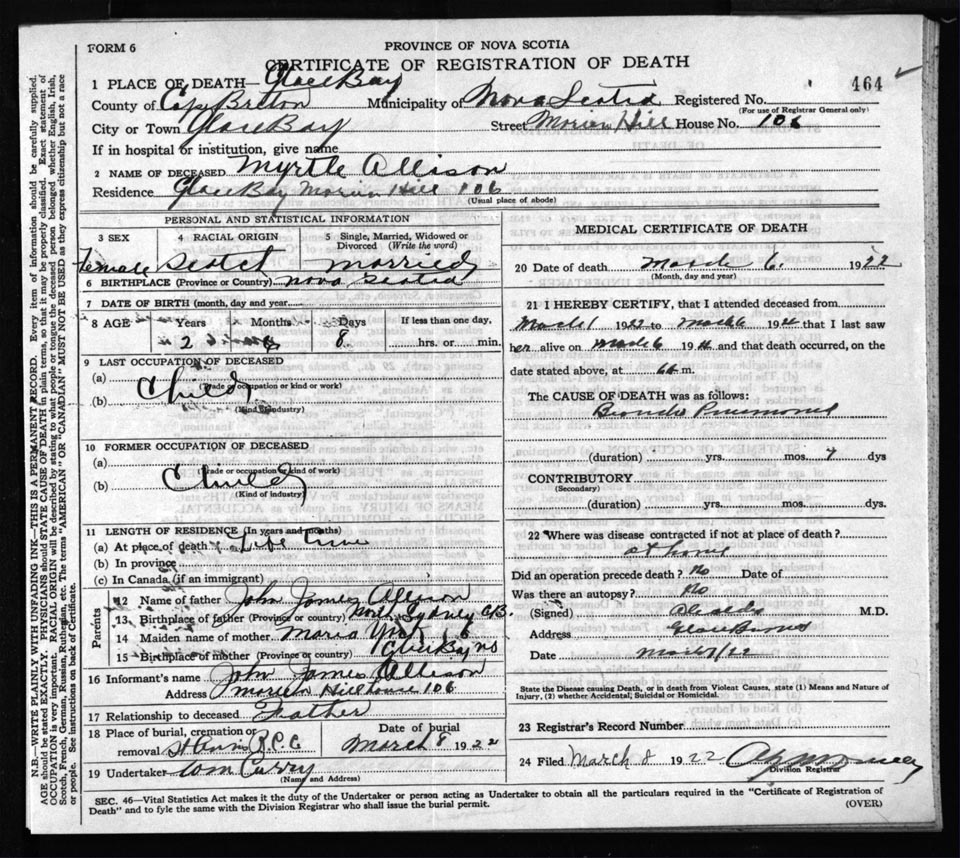 FORM 6
PROVINCE OF NOVA SCOTIA
CERTIFICATE OF REGISTRATION OF DEATH
464
1 PLACE OF DEATH Glace Bay
County of Cape Breton Municipality of Nova Scotia Registered No.
(For use of Registrar General only)
City or Town Glace Bay Street Morien Hill House No. 106
If in hospital or institution, give name
2 NAME OF DECEASED Myrtle Allison
Residence Glace Bay Morien Hill 106
(Usual place of abode)
PERSONAL AND STATISTICAL INFORMATION
3 SEX 4 RACIAL ORIGIN 5 Single, Married, Widowed or Divorced (Write the word)
Female Scotch
6 BIRTHPLACE (Province or Country) Nova Scotia
7 DATE OF BIRTH (month, day and year)
8 AGE Years Months Days If less than one day,
2 8 hrs. or min.
9 LAST OCCUPATION OF DECEASED
(a) Child
(Trade or occupation or kind of work)
(b)
(Kind of industry)
10 FORMER OCCUPATION OF DECEASED
(a)
(Trade or occupation or kind of work)
(b) Child
(Kind of industry)
11 LENGTH OF RESIDENCE (In years and months)
(a) At place of death Life Time
(b) In province
(c) In Canada (if an immigrant)
Parents
12 Name of father John James Allison
13 Birthplace of father (Province or Country) North Sydney C.B.
14 Maiden name of mother
15 Birthplace of mother (Province or country) Glace Bay NS
16 Informant's name John James Allison
Address Morien Hill house 106
17 Relationship to deceased Father
18 Place of burial, cremation or removal St Anns R.C.C Date of burial March 8 1922
19 Undertaker Tom Curry
(Name and Address)
MEDICAL CERTIFICATE OF DEATH
20 Date of death March 6. 1922
(Month, day and year)
21 I HEREBY CERTIFY, that I attended deceased from
March 1 1922 to March 6 19 that I last saw
her alive on March 6 19 and that death occurred, on the
date stated above, at m.
The CAUSE OF DEATH was as follows:
Broncho Pneumonia
(duration) yrs. mos. 7 dys
CONTRIBUTORY
(Secondary)
(duration) yrs. mos. dys.
22 Where was disease contracted if not at place of death?
at home
Did an operation precede death? No Date of
Was there an autopsy? No
(Signed) M.D.
Address Glace Bay NS
Date March 7/22
State the Disease causing Death, or in death from Violent Causes, state (1) Means and Nature of
Injury, (2) whether Accidental, Suicidal or Homicidal.
23 Registrar's Record Number
24 Filed March 8 1922
Division Registrar
SEC. 46—Vital Statistics Act makes it the duty of the Undertaker or person acting as Undertaker to obtain all the particulars required in the "Certificate of Registration of
Death" and to fyle the same with the Division Registrar who shall issue the burial permit.
(OVER)
N.B.—WRITE PLAINLY WITH UNFADING INK—THIS IS A PERMANENT RECORD. Every item of information should be carefully supplied.
AGE should be stated EXACTLY. PHYSICIANS should STATE CAUSE OF DEATH in plain terms, so that it may be properly classified. Exact statement of
OCCUPATION is very important. RACIAL ORIGIN will be described by stating to what people or tongue the deceased person belonged whether English, Irish,
Scotch, French, German, Russian, Ruthenian, etc. The terms "AMERICAN" OR "CANADIAN" MUST NOT BE USED as they express citizenship but not a race
or people. See instructions on back of Certificate.